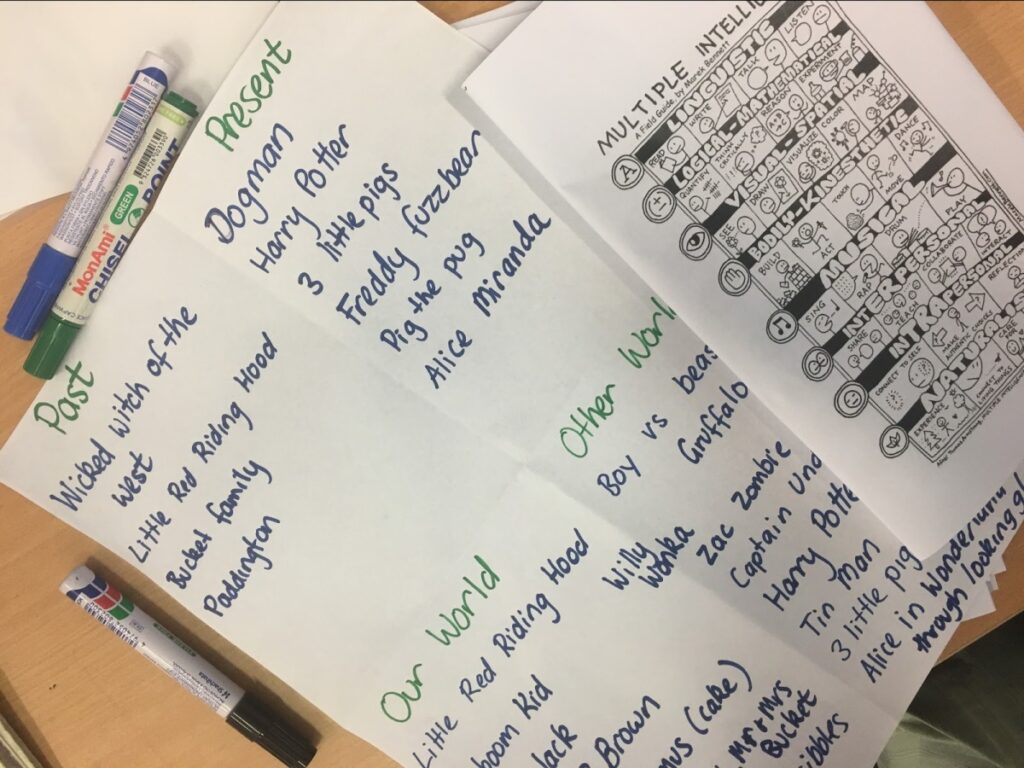 Present
Dogman
Harry Potter
3 little pigs
Freddy fuzzbear
Pig the pug
Alice Miranda
Past
Wicked Witch of the
West
Little Red Riding Hood
Bucket family
Paddington
Other World
Boy vs beas
Gruffalo
Willy
Wonka
Zac Zombie
Captain Und
Harry Potte
Tin man
3 little pig
Alice in Wonder
through looking gl
Our World
Little Red Riding Hood
boom Kid
Jack
Brown
mus (cake)
Mr + Mrs
Bucket
ibbles
MULTIPLE INTELLIG
A Field Guide by Marek Bennett
LINGUISTIC
READ
WRITE
TALK
LISTEN
LOGICAL-MATHEMATICAL
QUANTIFY
REASON
EXPERIMENT
VISUAL-SPATIAL
SEE
DRAW
VISUALIZE
COLOR
MAP
BODILY-KINESTHETIC
BUILD
ACT
TOUCH
MOVE
DANCE
MUSICAL
SING
RAP
DRUM
PLAY
INTERPERSONAL
SHARE
TEACH
COLLABORATE
INTRAPERSONAL
CONNECT TO SELF
NATURALIS
BLUE
MonAmi
GREEN
CHISEL POINT